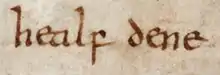 healf dene